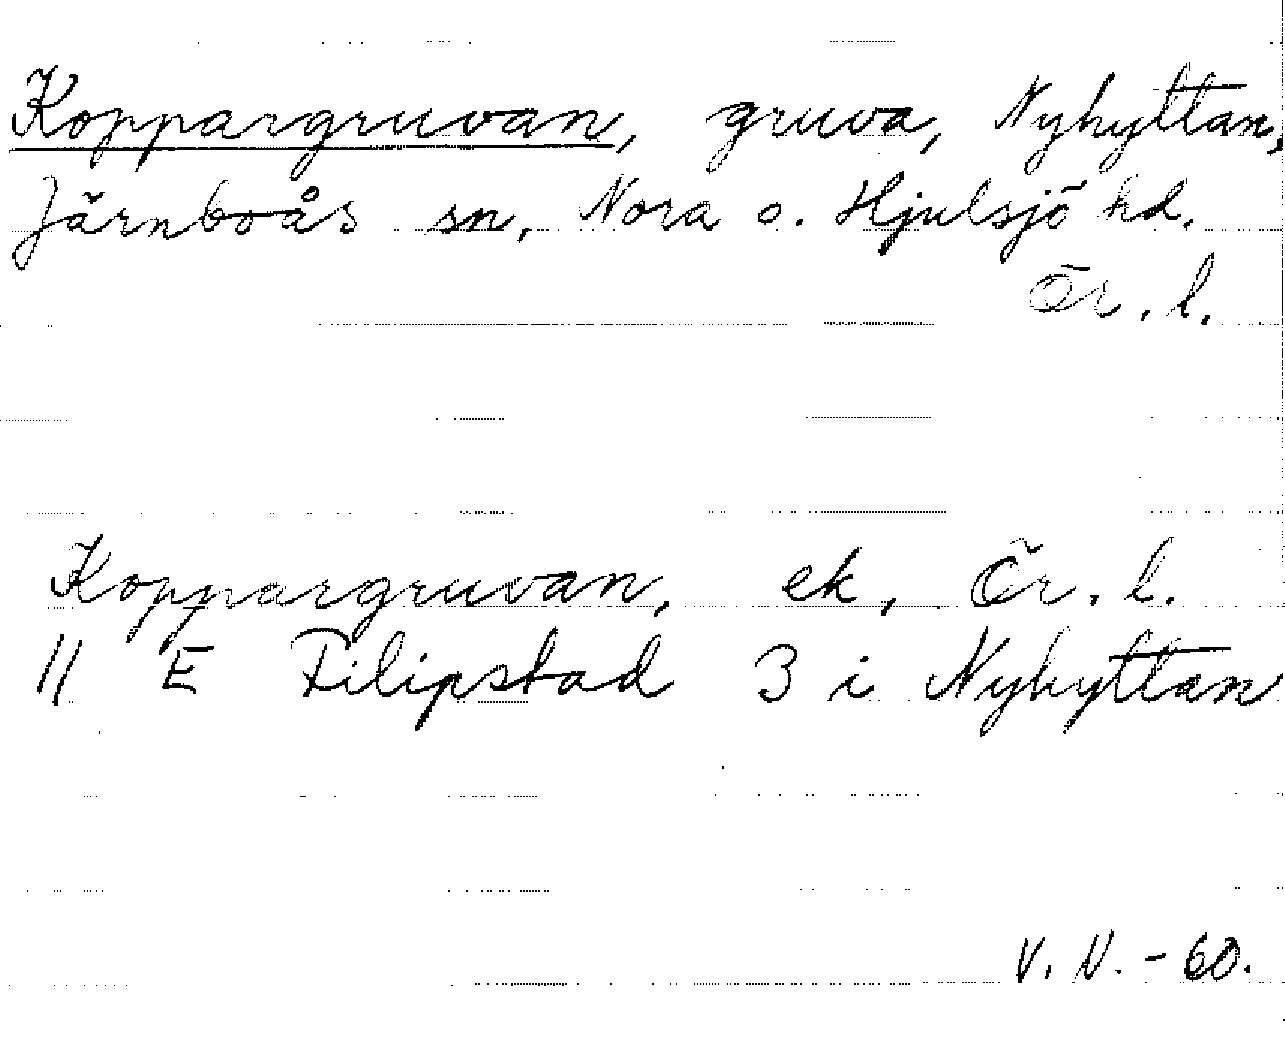 Koppargruvan, gruva, Nyhyttan,
Järnboås sn, Nora o. Hjulsjö hd.
Ör. l.
Koppargruvan, ek, Ör. l.
11 E Filipstad 3 i Nyhyttan
V. N. - 60.